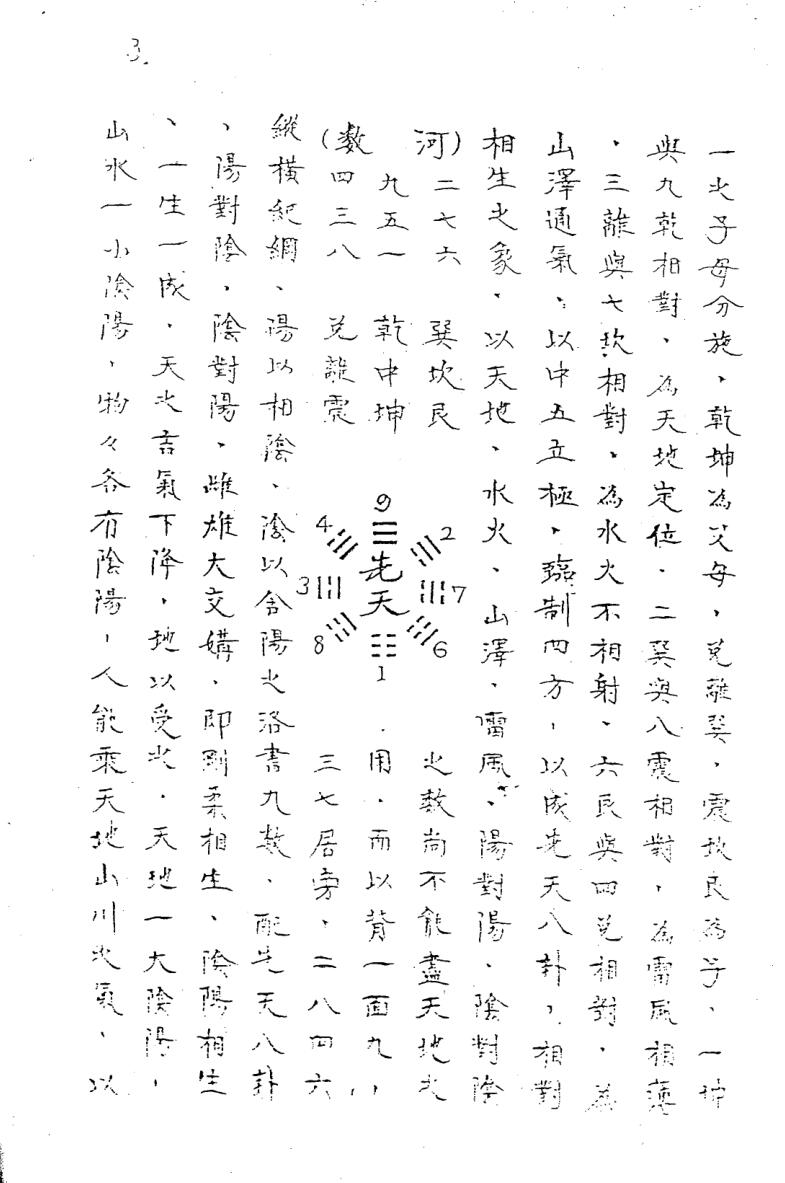 3.
一之子母分施，乾坤為父母，兌離巽，震坎艮為子，一坤
與九乾相對、為天地定位．二巽與八震相對，為雷風相薄
．三離與七坎相對、為水火不相射、六艮與四兌相對．為
山澤通氣，以中五立極，臨制四方，以成先天八卦，相對
相生之象．以天地、水火、山澤、雷風、陽對陽、陰對陰
河）二七六　巽坎艮　之數尚不能盡天地之
九五一　乾中坤　用．而以背一面九，
（数四三八　兌離震　三七居旁，二八四六
9
2
7
6
1
8
3
4
先天
縱橫紀綱、陽以相陰、陰以含陽之洛書九数．配先天八卦
、陽對陰，陰對陽、雌雄大交媾．即剛柔相生、陰陽相生
、一生一成．天之言氣下降，地以受之．天地一大陰陽，
山水一小陰陽，物々各有陰陽，人能乘天地山川之氣、以